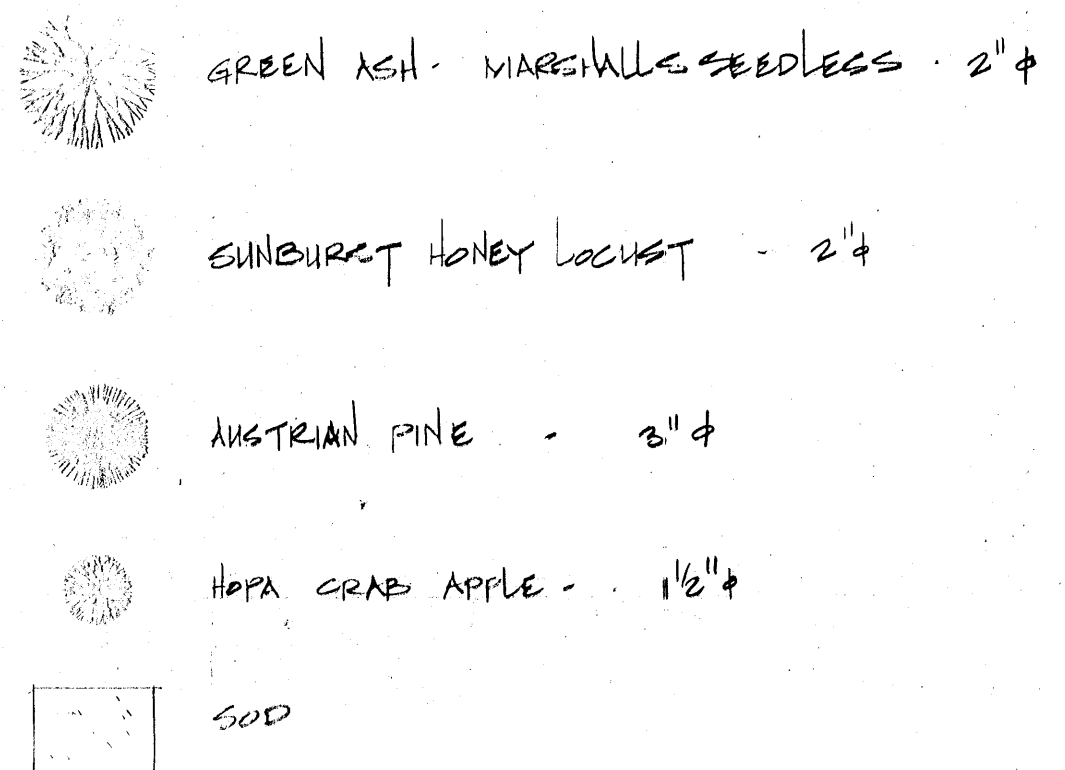 GREEN ASH - MARSHALLS SEEDLESS - 2" ϕ
SUNBURST HONEY LOCUST - 2" ϕ
AUSTRIAN PINE - 3" ϕ
HOPA CRAB APPLE - 1 1/2" ϕ
SOD